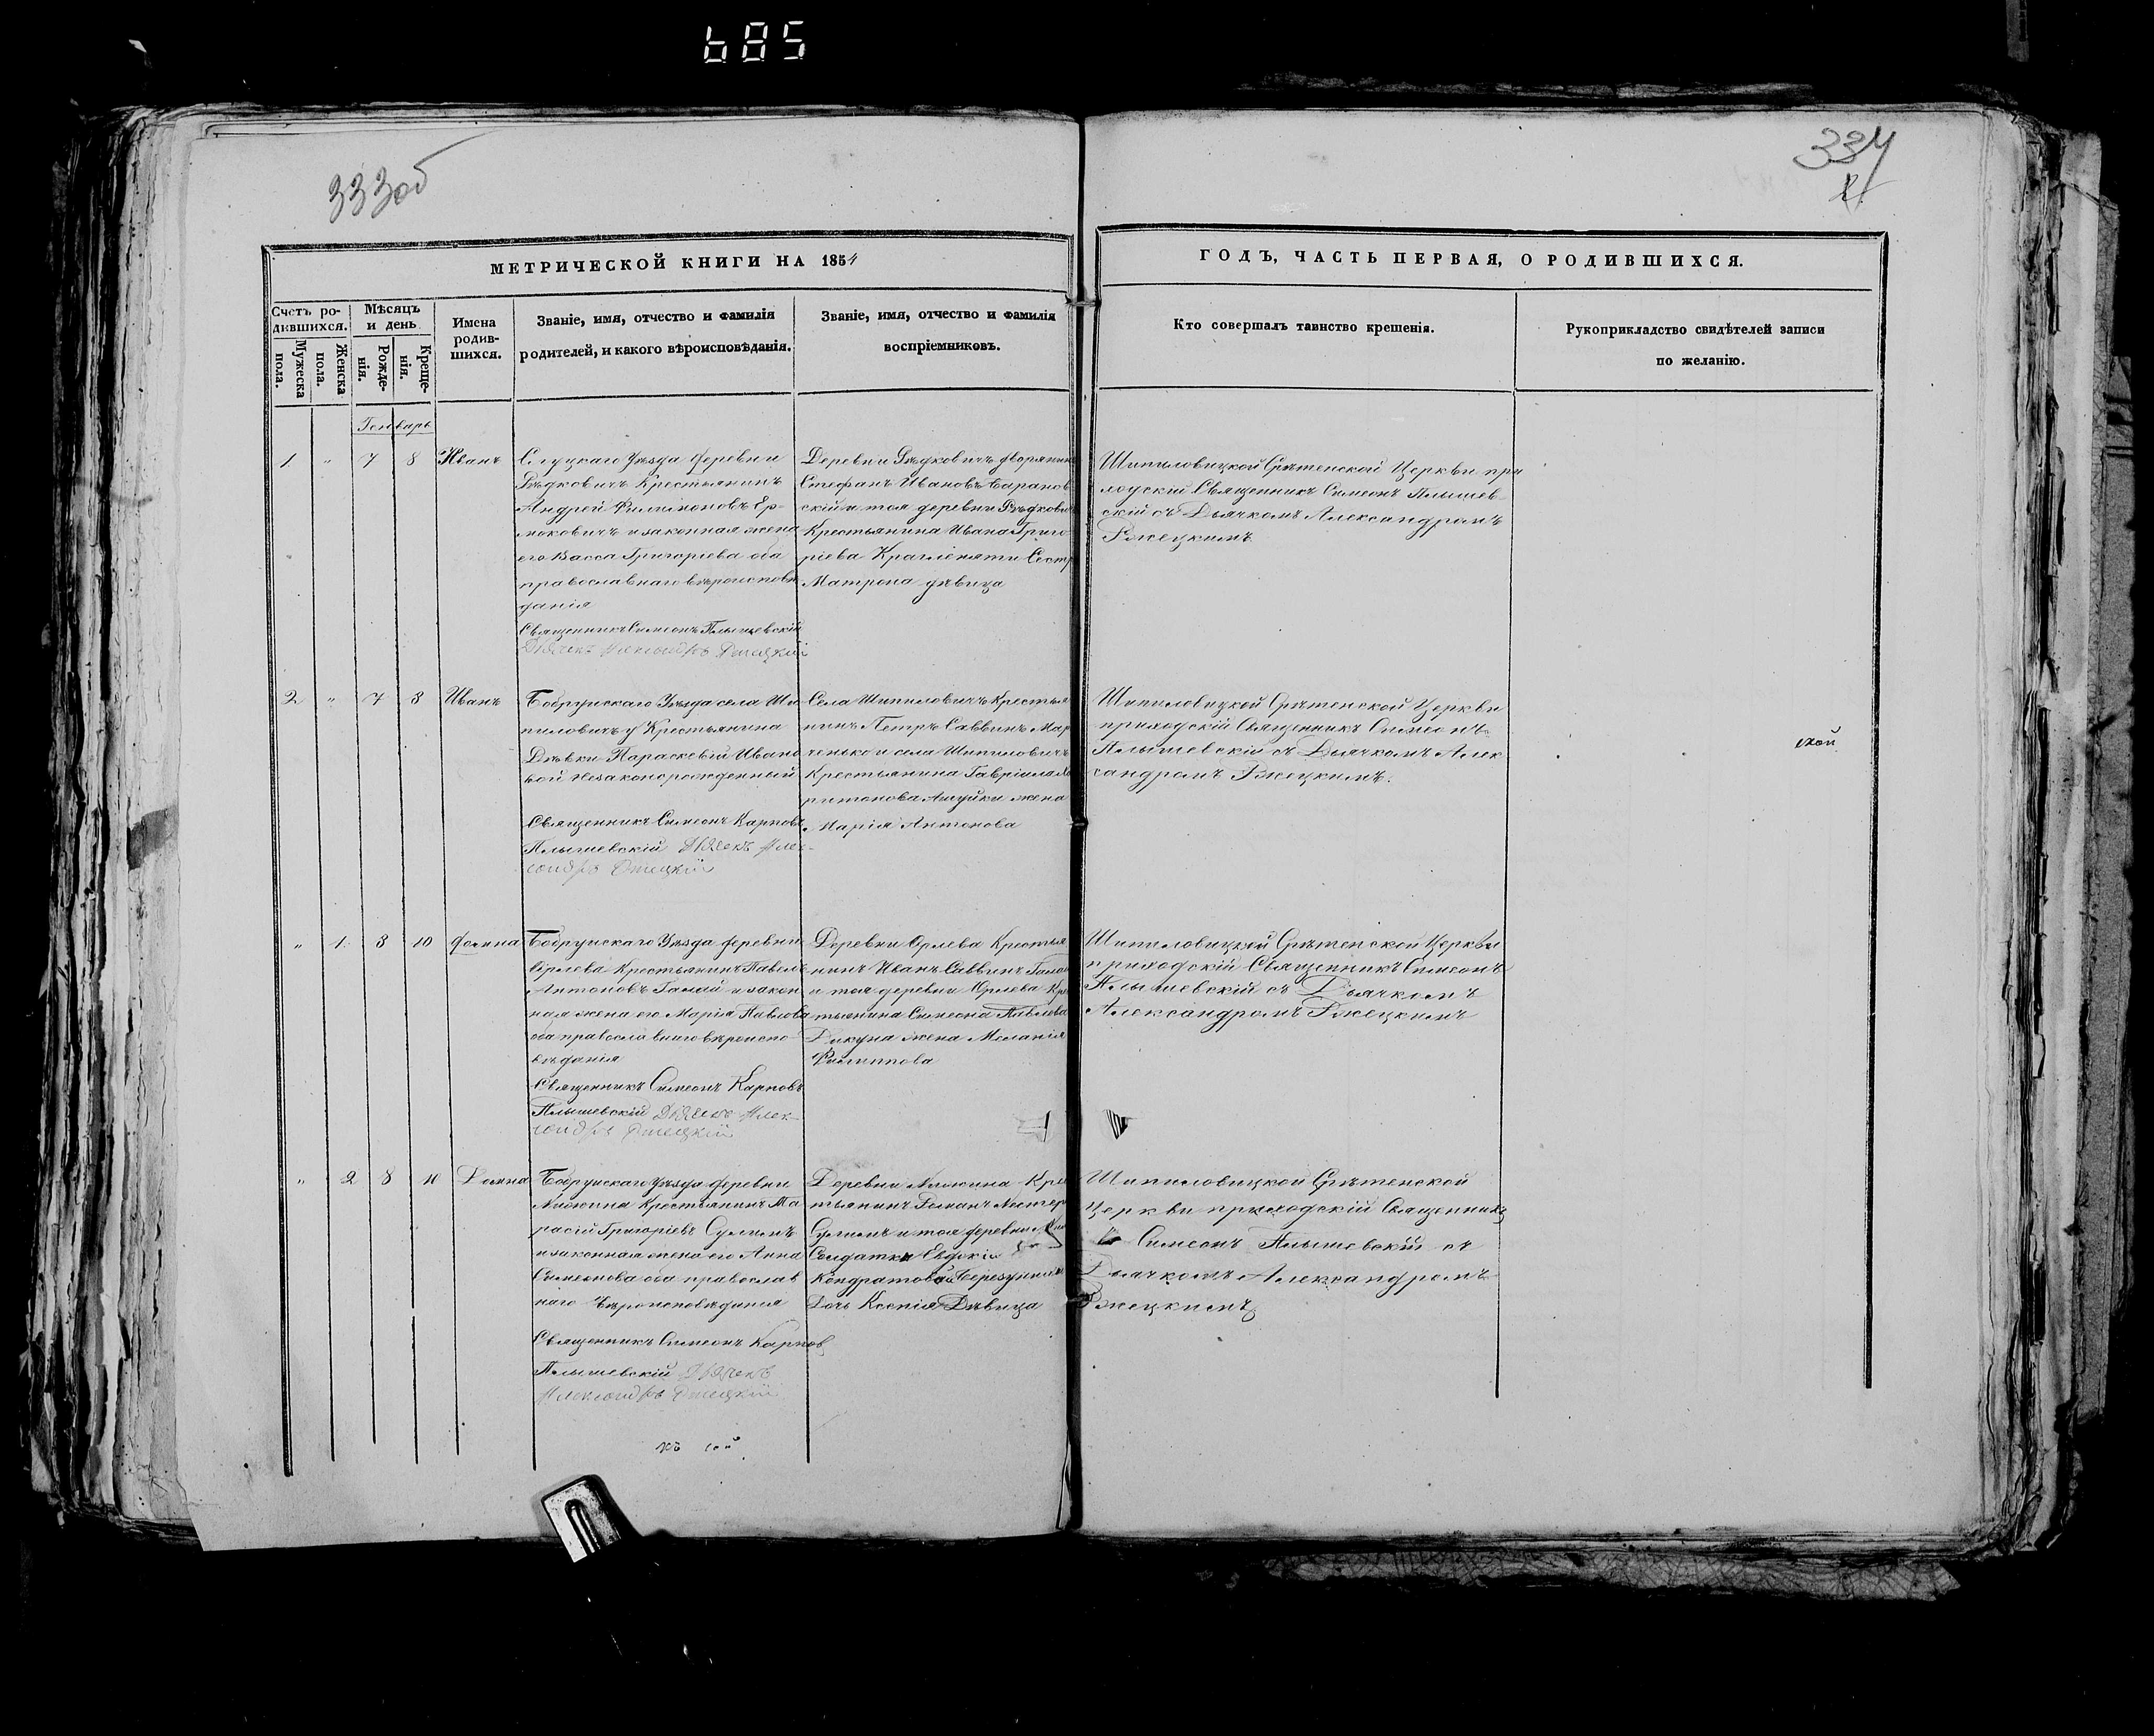 685
333об
334
МЕТРИЧЕСКОЙ КНИГИ НА 1854
ГОДЪ, ЧАСТЬ ПЕРВАЯ, О РОДИВШИХСЯ.
Счетъ ро-
дившихся.
Мужеска
пола.
Женска
пола.
Мѣсяцъ
и день
Рожде-
нія.
Креще-
нія.
Имена
родив-
шихся.
Званіе, имя, отчество и фамилія
родителей, и какого вѣроисповѣданія.
Званіе, имя, отчество и фамилія
воспріемниковъ.
Кто совершалъ таинство крещенія.
Рукоприкладство свидѣтелей записи
по желанію.
Генварь
1 " 7 8 Иванъ
Слуцкаго Уѣзда деревни
Крестьянинъ
Андрей Филимоновъ Ер-
моковичъ и законная жена
его Васса Григоріева оба
православнаго вѣроисповѣ
данія
Священникъ Симеонъ Плышевскій
Дьячекъ Александръ Ржецкій
Деревни дворянинъ
Стефанъ Ивановъ Баранов
скій и тоя деревни
Крестьянина Ивана Григо
ріева Сестр
Матрона дѣвица
Шипиловицкой Срѣтенской Церкви при
ходскій Священникъ Симеонъ Плышев
скій съ Дьячкомъ Александромъ
Ржецкимъ
2 " 7 8 Иванъ
Бобруйскаго Уѣзда села Ши
пиловичъ у Крестьянина
Дѣвки Параскевіи Ивано
вой незаконорожденный
Священникъ Симеонъ Карповъ
Плышевскій Дьячекъ Алек-
сандръ Ржецкій
Села Шипиловичъ Крестья
нинъ Петръ Саввинъ Мар
ченько и села Шипиловичъ
Крестьянина Гавріила Ха
ритонова жена
Марія Антонова
Шипиловицкой Срѣтенской Церкви
приходскій Священникъ Симеонъ
Плышевскій съ Дьячкомъ Алек
сандромъ Ржецкимъ.
" 1 8 10 Домна
Бобруйскаго Уѣзда деревни
Орлева Крестьянинъ Павелъ
Антоновъ Галай и закон
ная жена его Марія Павлова
оба православнаго вѣроиспо-
вѣданія
Священникъ Симеонъ Карповъ
Плышевскій Дьячекъ Алек-
сандръ Ржецкій
Деревни Орлева Крестья
нинъ Иванъ Саввинъ
и тоя деревни Орлева Кре
тьянина Симеона Павлова
Дикуна жена Меланія
Филиппова
Шипиловицкой Срѣтенской Церкви
приходскій Священникъ Симеонъ
Плышевскій съ Дьячкомъ
Александромъ Ржецкимъ
" 2 8 10 Домна
Бобруйскаго Уѣзда деревни
Крестьянинъ
Григоріевъ Сулимъ
и законная жена его Анна
Симеонова оба православ
наго Вѣроисповѣданія
Священникъ Симеонъ Карпов
Плышевскій Дьячекъ
Александръ Ржецкій
Деревни Кре
тьянинъ Романъ Нестеро
Сулимъ и тоя деревни
Солдатки Евдокіи
Кондратовой
Дочь Ксенія Дѣвица
Шипиловицкой Срѣтенской
Церкви приходскій Священникъ
Симеонъ Плышевскій съ
Дьячкомъ Александромъ
Ржецкимъ
къ сей